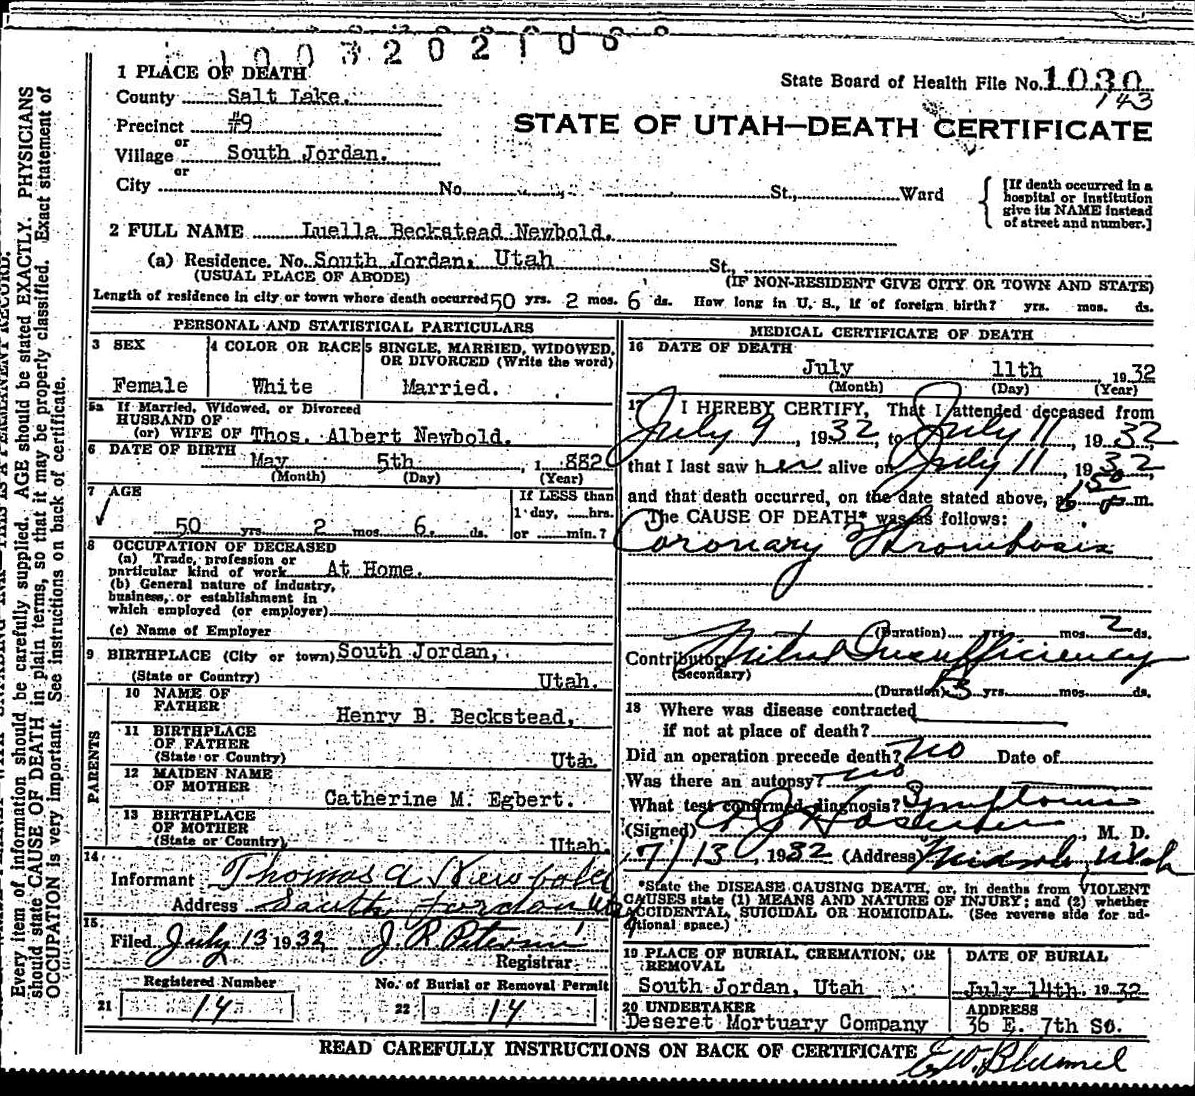 1003202106
1 PLACE OF DEATH
State Board of Health File No. 1030
143
County Salt Lake.
Precinct #9
STATE OF UTAH—DEATH CERTIFICATE
or
Village South Jordan.
or
City No. St., Ward
[If death occurred in a hospital or institution give its NAME instead of street and number.]
2 FULL NAME Luella Beckstead Newbold.
(a) Residence. No. South Jordan, Utah St.,
(USUAL PLACE OF ABODE) (IF NON-RESIDENT GIVE CITY OR TOWN AND STATE)
Length of residence in city or town where death occurred 50 yrs. 2 mos. 6 ds. How long in U. S., if of foreign birth? yrs. mos. ds.
PERSONAL AND STATISTICAL PARTICULARS
3 SEX
Female
4 COLOR OR RACE
White
5 SINGLE, MARRIED, WIDOWED, OR DIVORCED (Write the word)
Married.
5a If Married, Widowed, or Divorced
HUSBAND OF
(or) WIFE OF Thos. Albert Newbold.
6 DATE OF BIRTH
May 5th, 1 882
(Month) (Day) (Year)
7 AGE
50 yrs. 2 mos. 6. ds.
If LESS than
1 day, hrs.
or min.?
8 OCCUPATION OF DECEASED
(a) Trade, profession or
particular kind of work At Home.
(b) General nature of industry,
business, or establishment in
which employed (or employer)
(c) Name of Employer
9 BIRTHPLACE (City or town) South Jordan,
(State or Country) Utah.
PARENTS
10 NAME OF
FATHER
Henry B. Beckstead,
11 BIRTHPLACE
OF FATHER
(State or Country) Utah.
12 MAIDEN NAME
OF MOTHER
Catherine M. Egbert.
13 BIRTHPLACE
OF MOTHER
(State or Country) Utah.
14
Informant Thomas A Newbold
Address South Jordan
15
Filed July 13 1932 J R Peterson
Registrar
Registered Number
21 14
No. of Burial or Removal Permit
22 14
MEDICAL CERTIFICATE OF DEATH
16 DATE OF DEATH
July 11th 1932
(Month) (Day) (Year)
17 I HEREBY CERTIFY, That I attended deceased from
July 9, 1932, to July 11, 1932,
that I last saw her alive on July 11, 1932,
and that death occurred, on the date stated above, m.
The CAUSE OF DEATH* was as follows:
Coronary Thrombosis
(Duration) yrs. mos. 2 ds.
Contributory Mitral Insufficiency
(Secondary)
(Duration) 3 yrs. mos. ds.
18 Where was disease contracted
if not at place of death?
Did an operation precede death? no Date of
Was there an autopsy? no
What test confirmed diagnosis? Symptoms
(Signed) M. D.
7/13, 1932 (Address) Midvale, Utah
*State the DISEASE CAUSING DEATH, or, in deaths from VIOLENT
CAUSES state (1) MEANS AND NATURE OF INJURY; and (2) whether
ACCIDENTAL, SUICIDAL OR HOMICIDAL. (See reverse side for additional space.)
19 PLACE OF BURIAL, CREMATION, OR
REMOVAL
South Jordan, Utah
DATE OF BURIAL
July 14th. 1932
20 UNDERTAKER
Deseret Mortuary Company
ADDRESS
36 E. 7th So.
READ CAREFULLY INSTRUCTIONS ON BACK OF CERTIFICATE
Every item of information should be carefully supplied. AGE should be stated EXACTLY. PHYSICIANS
should state CAUSE OF DEATH in plain terms, so that it may be properly classified. Exact statement of
OCCUPATION is very important. See instructions on back of certificate.